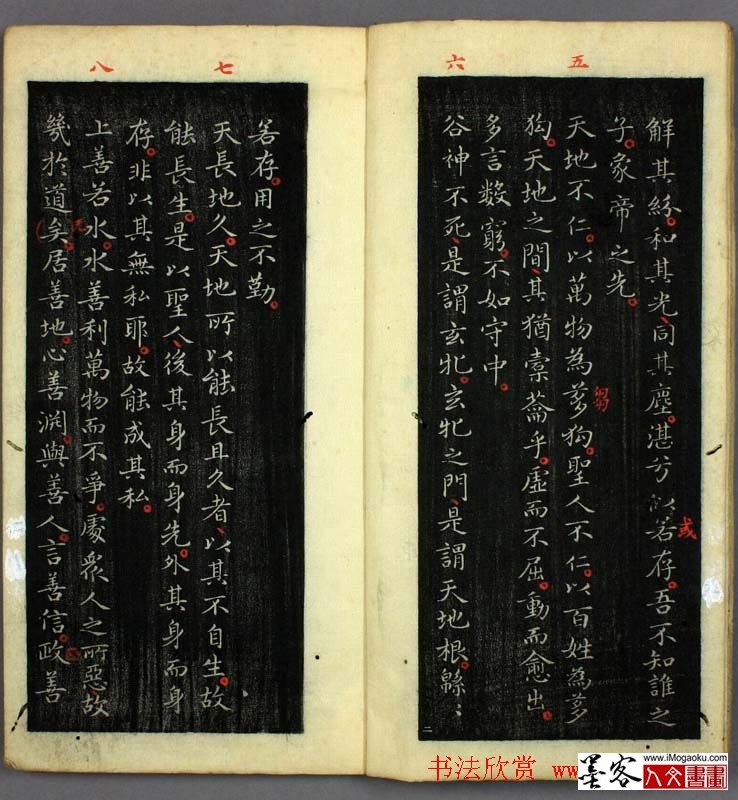 五
六
解其紛。和其光、同其塵。湛兮似若存。吾不知誰之
或
子。象帝之先。
天地不仁。以萬物為芻狗。聖人不仁。以百姓為芻
芻
狗。天地之間、其猶橐籥乎。虛而不屈。動而愈出。
多言數窮。不如守中。
谷神不死、是謂玄牝。玄牝之門、是謂天地根。緜〻
二
七
八
若存。用之不勤。
天長地久。天地所以能長且久者、以其不自生。故
能長生。是以聖人、後其身而身先。外其身而身
存。非以其無私耶。故能成其私。
上善若水。水善利萬物而不爭。處衆人之所惡。故
幾於道矣。居善地。心善淵。與善人。言善信。政善
书法欣赏 ww
墨客
人文書畫
www.iMogaoku.com